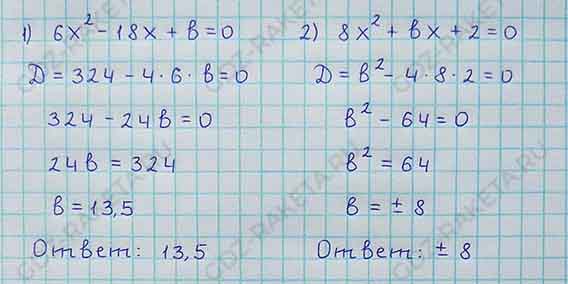 1) 6x² - 18x + b = 0
D = 324 - 4·6·b = 0
324 - 24b = 0
24b = 324
b = 13,5
Ответ: 13,5
2) 8x² + bx + 2 = 0
D = b² - 4·8·2 = 0
b² - 64 = 0
b² = 64
b = ± 8
Ответ: ± 8
GDZ-RAKETA.RU